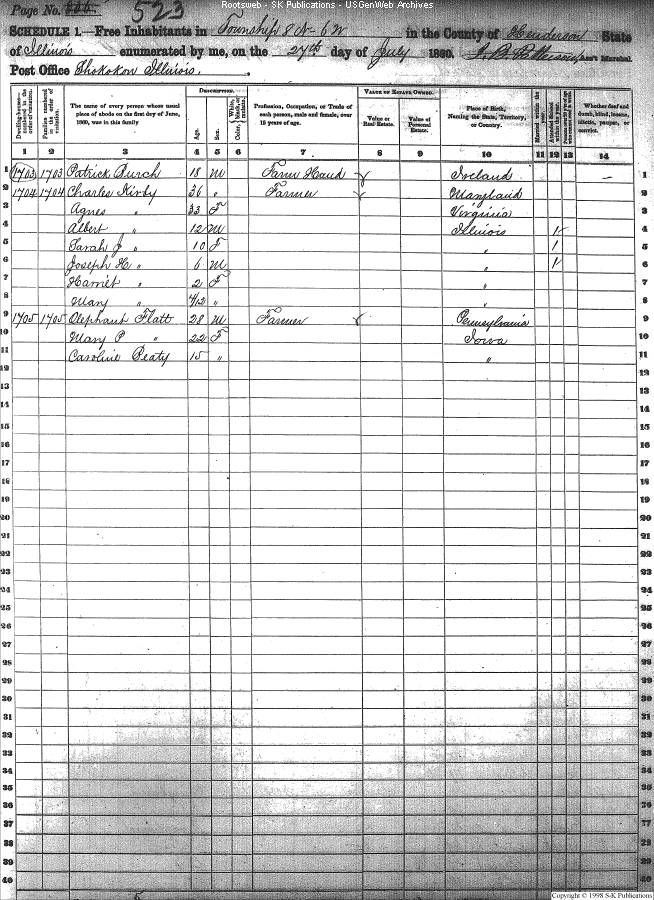 Rootsweb - SK Publications - USGenWeb Archives
Page No. 523
SCHEDULE 1.—Free Inhabitants in Township 8 N - 6 W in the County of Henderson State
of Illinois enumerated by me, on the 27th day of July 1860. Ass't Marshal.
Post Office Shokokon Illinois.
Dwelling-houses—numbered in the order of visitation.
Families numbered in the order of visitation.
The name of every person whose usual place of abode on the first day of June, 1860, was in this family
DESCRIPTION.
Age.
Sex.
Color, White, black, or mulatto.
Profession, Occupation, or Trade of each person, male and female, over 15 years of age.
VALUE OF ESTATE OWNED.
Value of Real Estate.
Value of Personal Estate.
Place of Birth, Naming the State, Territory, or Country.
Married within the year.
Attended School within the year.
Whether deaf and dumb, blind, insane, idiotic, pauper, or convict.
1 2 3 4 5 6 7 8 9 10 11 12 13 14
1 1703 1703 Patrick Burch 18 M Farm Hand Ireland 1
2 1704 1704 Charles Kirby 36 " Farmer Maryland 2
3 Agnes " 33 F Virginia 3
4 Albert " 12 M Illinois 1 4
5 Sarah J " 10 F " 1 5
6 Joseph H " 6 M " 1 6
7 Harriet " 2 F " 7
8 Mary " 4/12 " " 8
9 1705 1705 Olephant Flatt 28 M Farmer Pennsylvania 9
10 Mary P " 22 F Iowa 10
11 Caroline Peaty 15 " " 11
12 12
13 13
14 14
15 15
16 16
17 17
18 18
19 19
20 20
21 21
22 22
23 23
24 24
25 25
26 26
27 27
28 28
29 29
30 30
31 31
32 32
33 33
34 34
35 35
36 36
37 37
38 38
39 39
40 40
Copyright © 1998 S-K Publications